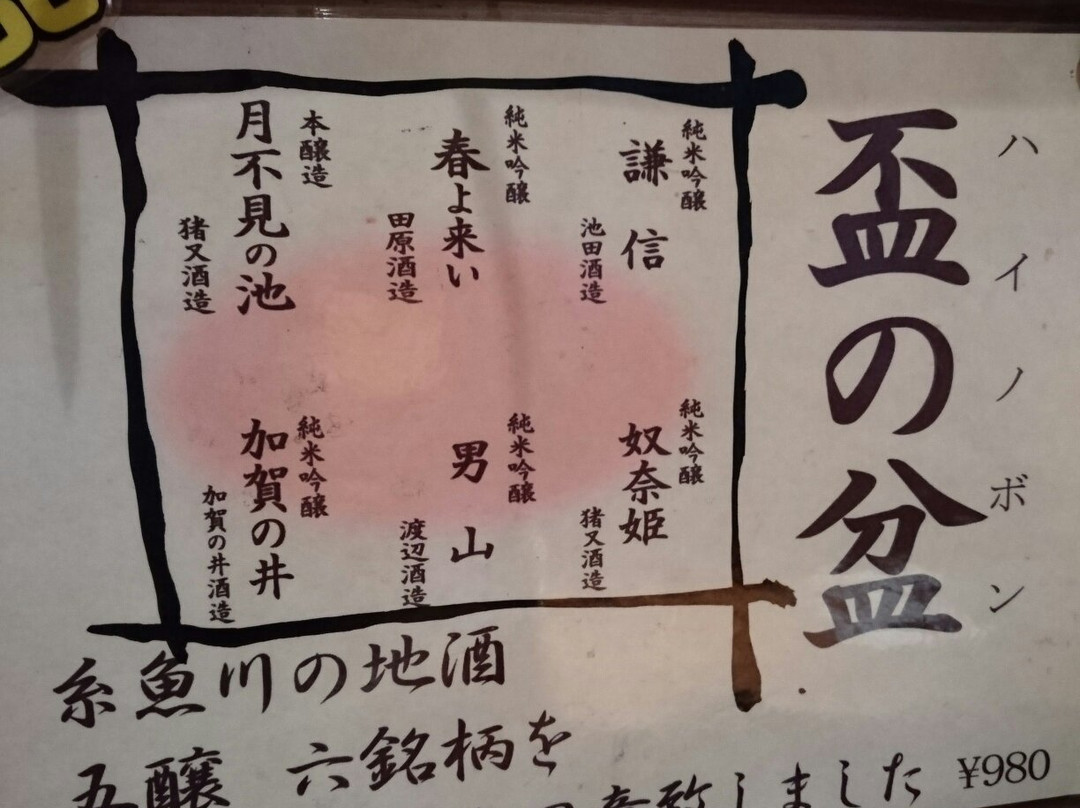 盃の盆
ハイノボン
純米吟醸
謙信
池田酒造
純米吟醸
春よ来い
田原酒造
本醸造
月不見の池
猪又酒造
純米吟醸
奴奈姫
猪又酒造
純米吟醸
男山
渡辺酒造
純米吟醸
加賀の井
加賀の井酒造
糸魚川の地酒
五醸 六銘柄を
致しました
¥980